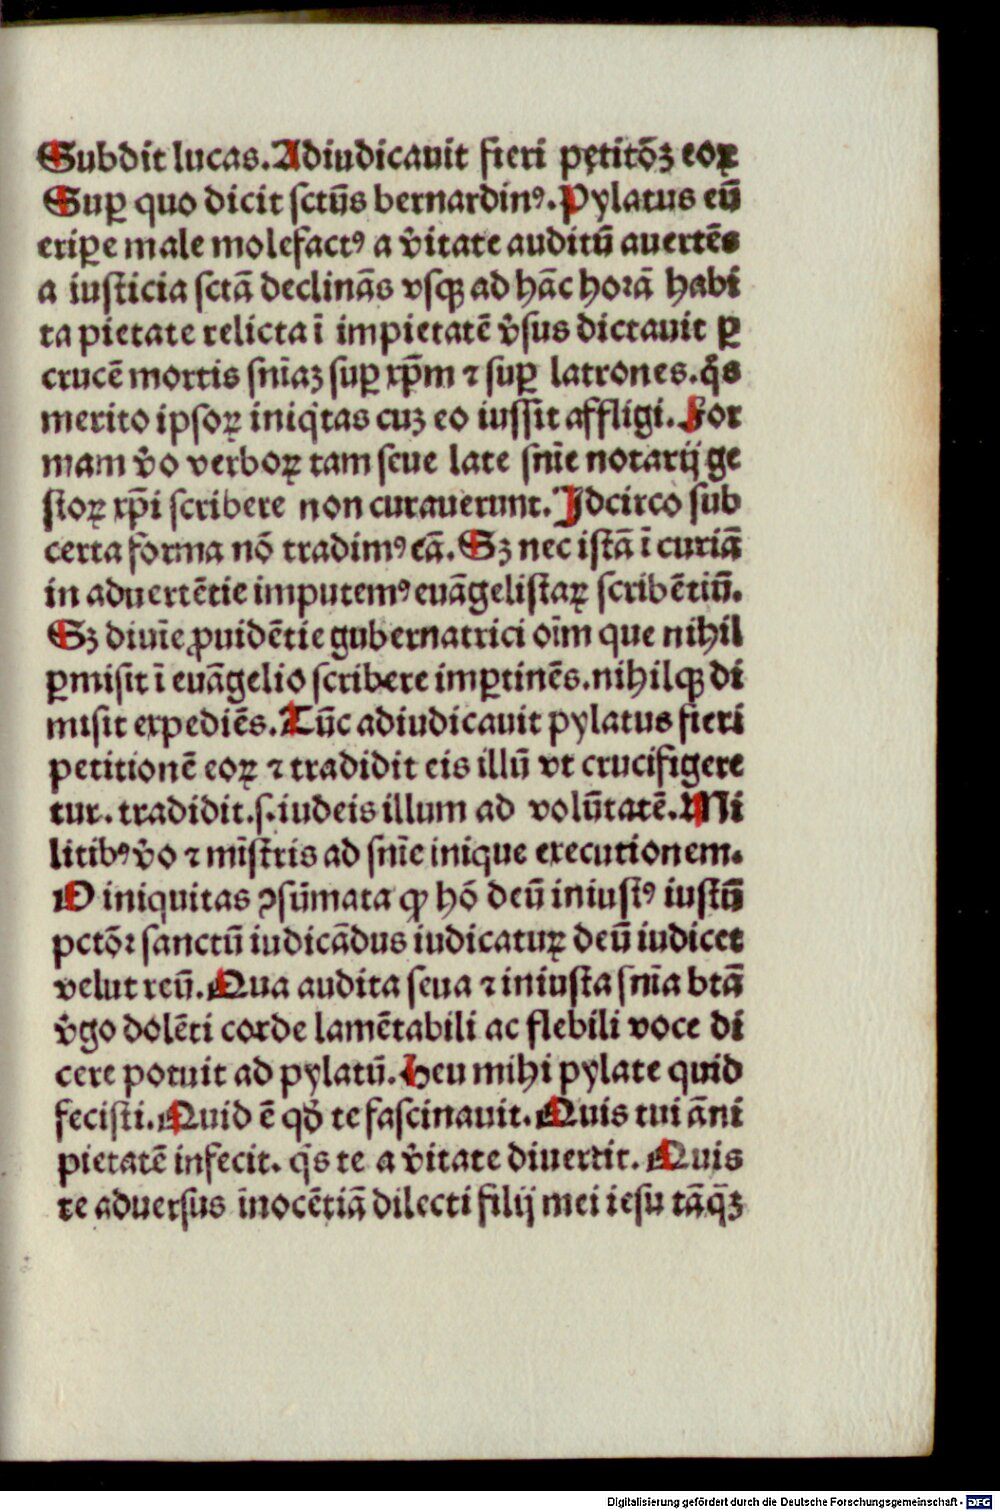 Subdit lucas. Adiudicauit fieri petitõꝫ eoꝝ
Suꝑ quo dicit sctũs bernardinꝰ. Pylatus eũ
eriꝑe male molefactꝰ a v̾itate auditũ auertẽs
a iusticia sctã declinãs vsqꝫ ad hãc horã habi
ta pietate relicta ĩ impietatẽ v̾sus dictauit ꝑ
crucẽ mortis snĩaꝫ suꝑ xp̃m ⁊ suꝑ latrones. q̃s
merito ipsoꝝ iniq̇tas cuꝫ eo iussit affligi. For
mam v̾o verboꝝ tam seue late snĩe notarij ge
stoꝝ xp̃i scribere non curauerunt. Idcirco sub
certa forma nõ tradimꝰ eã. Sꝫ nec istã ĩ curiã
in aduertẽtie imputemꝰ euãgelistaꝝ scribẽtiũ.
Sꝫ diuĩe ꝓuidẽtie gubernatrici oĩm que nihil
ꝑmisit ĩ euãgelio scribere imꝑtinẽs. nihilqꝫ di
misit expediẽs. Tũc adiudicauit pylatus fieri
petitionẽ eoꝝ ⁊ tradidit eis illũ vt crucifigere
tur. tradidit .s. iudeis illum ad volũtatẽ. Mi
litibꝰ v̾o ⁊ mĩstris ad snĩe inique executionem.
O iniquitas ꝯsũmata ꝙ hõ deũ iniustꝰ iustũ
pctõꝛ sanctũ iudicãdus iudicatuꝝ deũ iudicet
velut reũ. Qua audita seua ⁊ iniusta snĩa btã
v̾go dolẽti corde lamẽtabili ac flebili voce di
cere potuit ad pylatũ. Heu mihi pylate quid
fecisti. Quid ẽ qđ te fascinauit. Quis tui ãni
pietatẽ infecit. q̇s te a v̾itate diuertit. Quis
te aduersus ĩnocẽtiã dilecti filij mei iesu tãq̃ꝫ
Digitalisierung gefördert durch die Deutsche Forschungsgemeinschaft - DFG